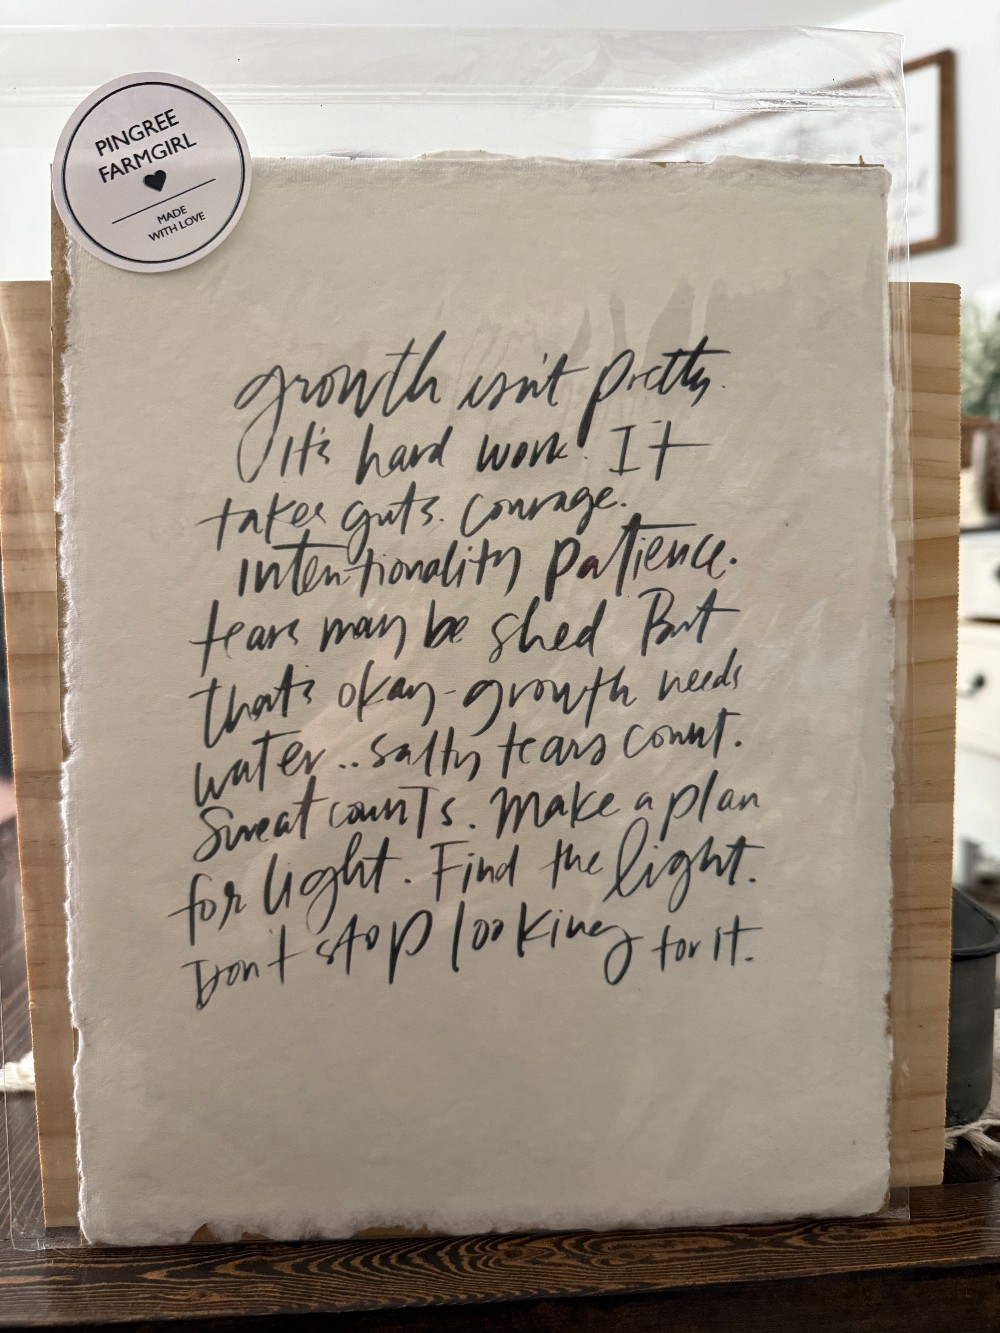 PINGREE
FARMGIRL
MADE
WITH LOVE
growth isn't pretty.
It's hard work. It
takes guts. Courage.
Intentionality Patience.
tears may be shed But
that's okay-growth needs
water.. salty tears count.
Sweat counts. Make a plan
for light. Find the light.
Don't stop looking for it.